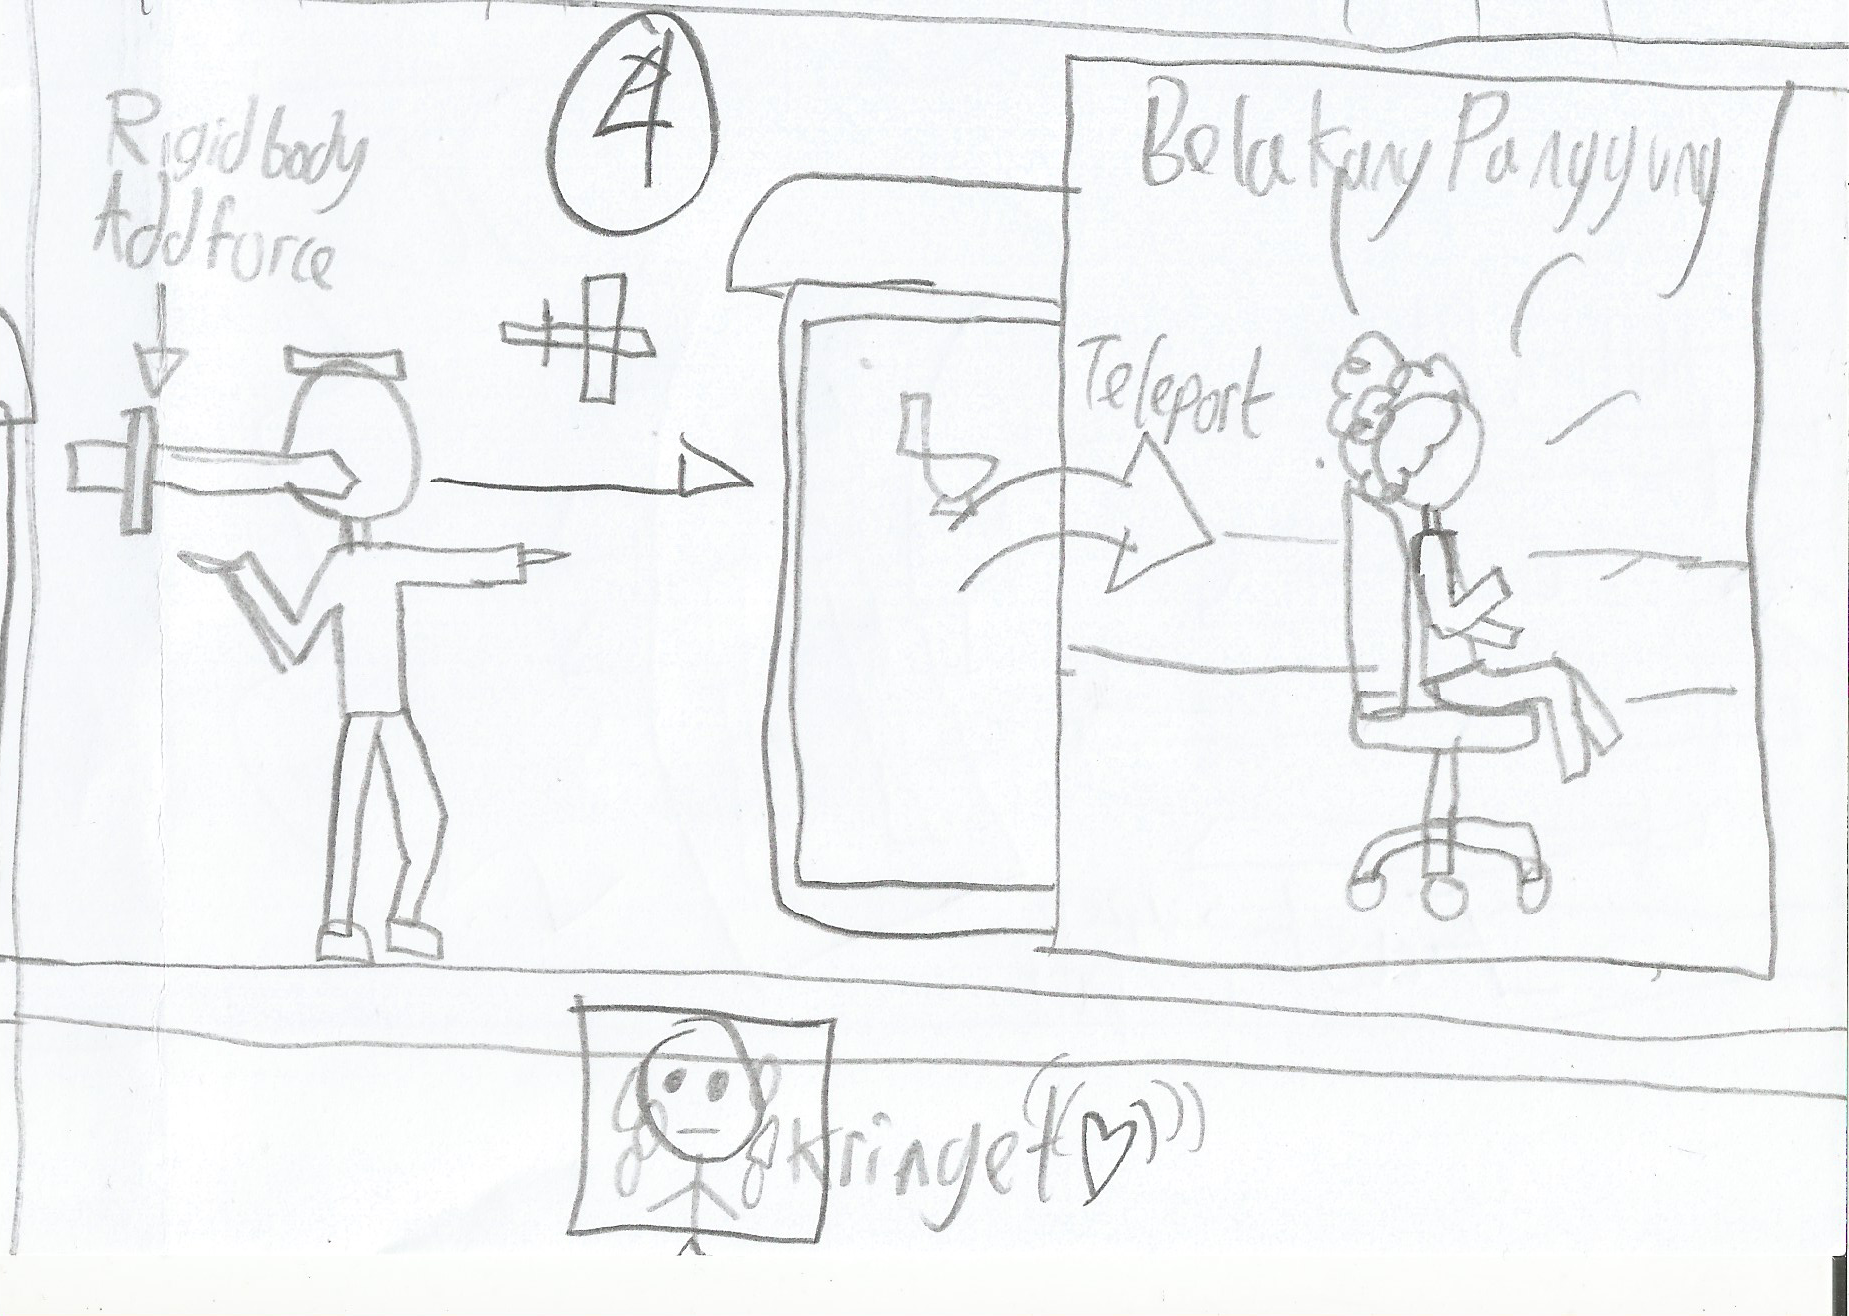 4
Rigidbody
Addforce
Belakang Panggung
Teleport
Kringet